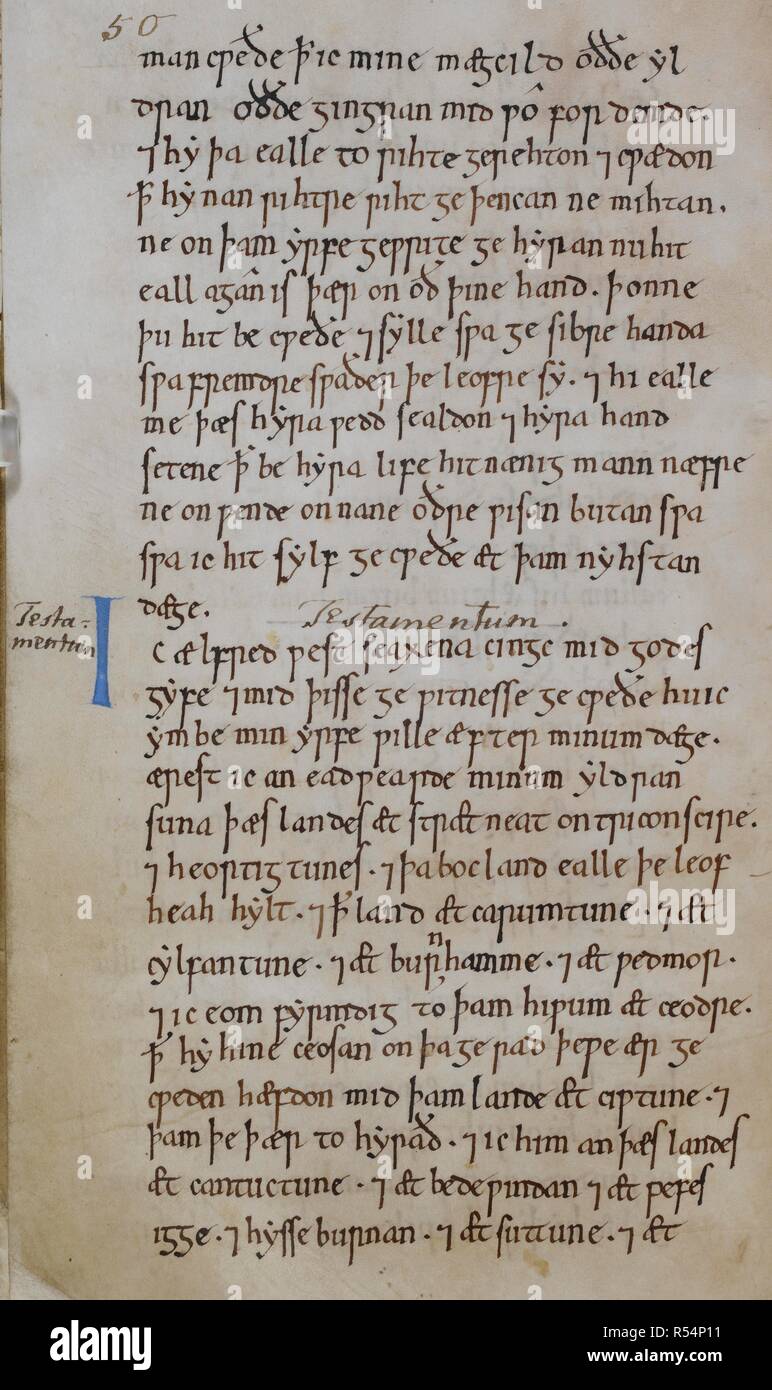 50
man cƿæðe ꝥ ic mine mægcild oððe yl
dran oððe gingran mid ƿo fordemde.
⁊ hy þa ealle to rihte gerehton ⁊ cƿædon
ꝥ hy nan rihtre riht geþencan ne mihtan.
ne on þam yrfe geƿrite gehyran nu hit
eall agan is þær on oð þine hand. þonne
þu hit becƿeðe ⁊ sylle sƿa gesibre handa
sƿa fremdre sƿaðer þe leofre sy. ⁊ hi ealle
me þæs hyra ƿedd sealdon ⁊ hyra hand
setene ꝥ be hyra life hit nænig mann næfre
ne onƿende on nane oðre ƿisan butan sƿa
sƿa ic hit sylf gecƿeðe æt þam nyhstan
dæge. Testamentum.
Testa-
mentum
Ic ælfred ƿestseaxena cingc mid godes
gyfe ⁊ mid þisse geƿitnesse gecƿeðe hu ic
ymbe min yrfe ƿille æfter minum dæge.
ærest ic an eadƿearde minum yldran
suna þæs landes æt strætneat on triconscire.
⁊ heortigtunes. ⁊ þa bocland ealle þe leof
heah hylt. ⁊ ꝥ land æt carumtune. ⁊ æt
cylfantune. ⁊ æt burnhamme. ⁊ æt ƿedmor.
⁊ ic eom fyrmdig to þam hiƿum æt ceodre.
ꝥ hy hine ceosan on þa gerad þe ƿe ær ge
cƿeden hæfdon mid þam lande æt ciƿtune. ⁊
þam þe þær to hyrað. ⁊ ic him an þæs landes
æt cantuctune. ⁊ æt bedeƿindan ⁊ æt ƿefes
igge. ⁊ hysseburnan. ⁊ æt suttune. ⁊ æt
alamy
Image ID: R54P11
www.alamy.com